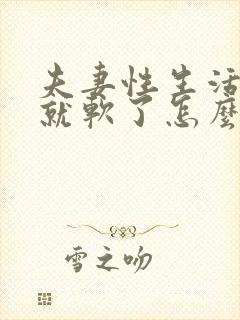 夫妻性生活
就軟了怎麼
雪之吻